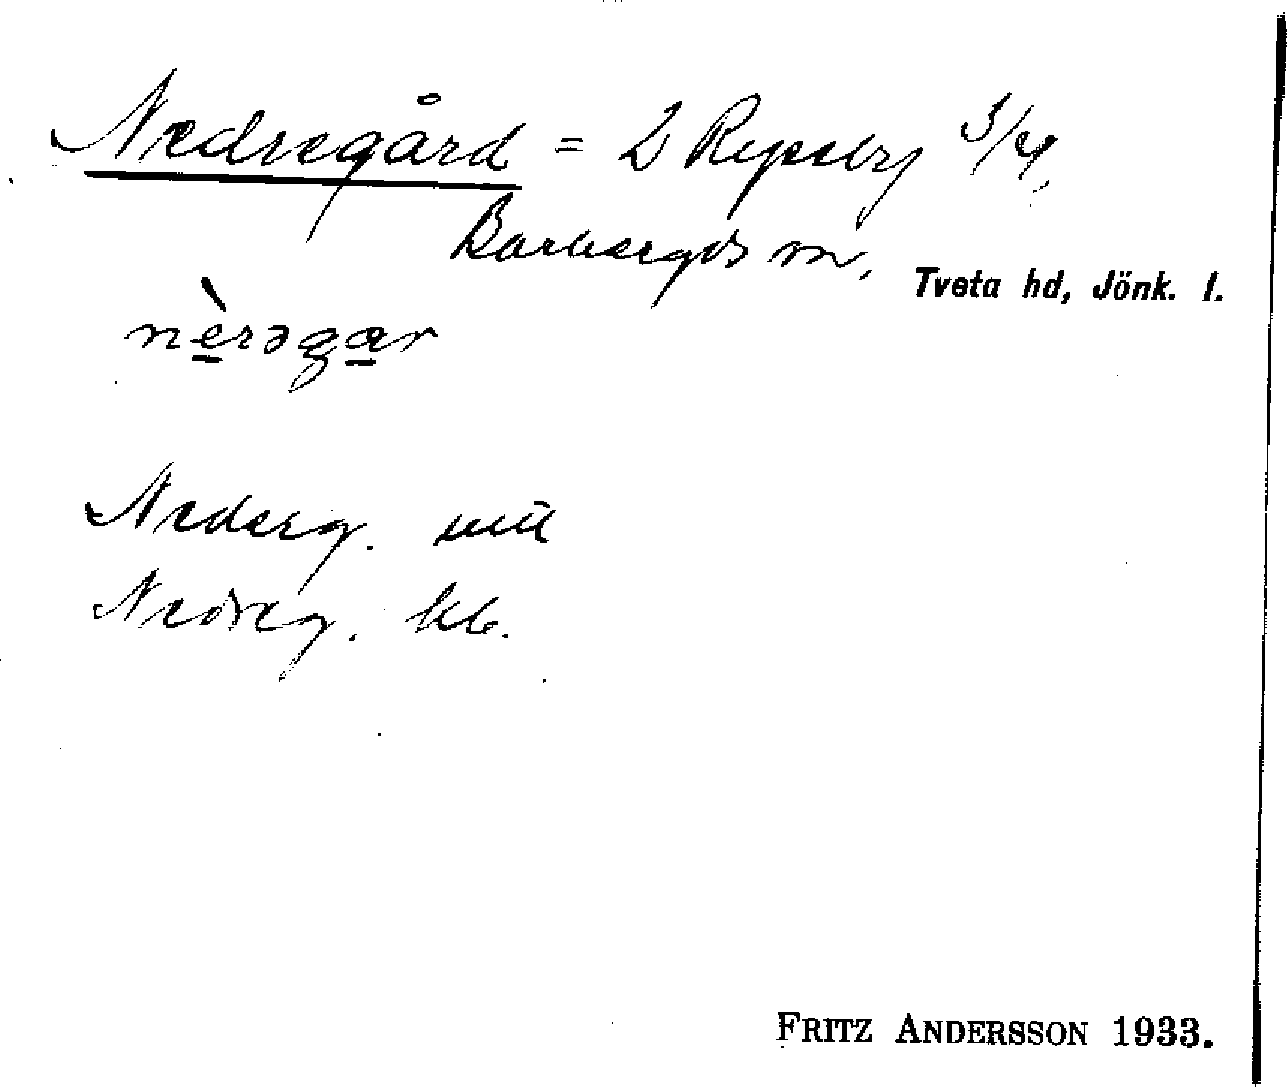 Nedregård = L Rypsby 3/4,
Barkeryds sn,
Tveta hd, Jönk. l.
nèrəgar
Nederg.
Nedreg. kb.
FRITZ ANDERSSON 1933.